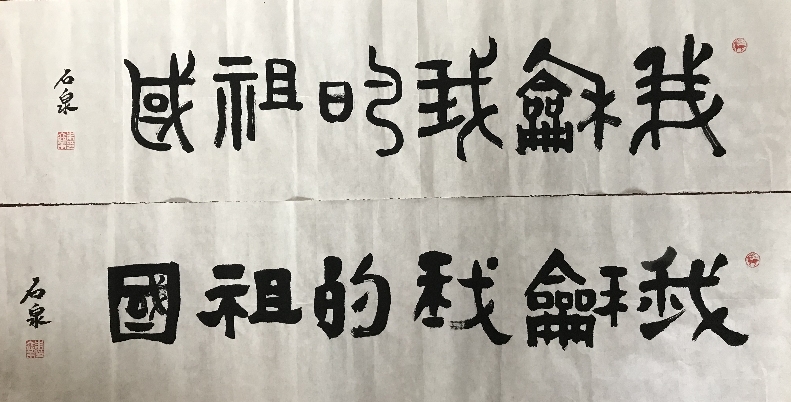 我龢我的祖國
石泉
我龢我的祖國
石泉